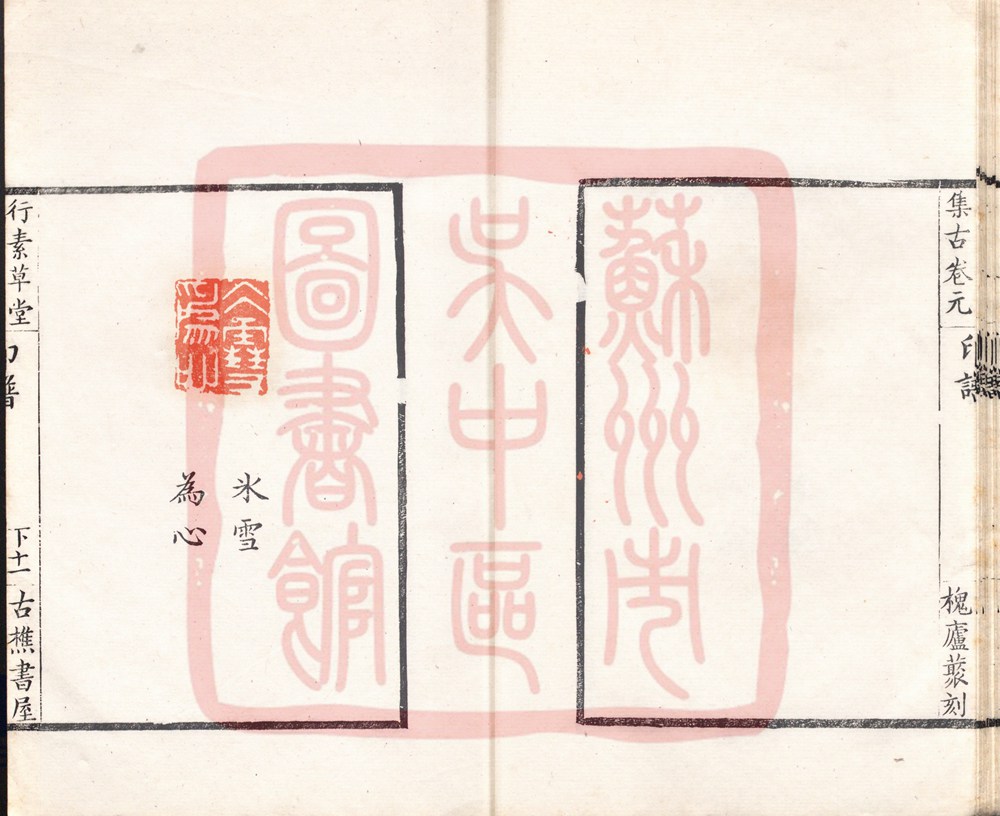 集古卷元
印譜
槐廬藂刻
蘇州市
吳中區
圖書館
氷雪
為心
行素草堂
下十一
古樵書屋